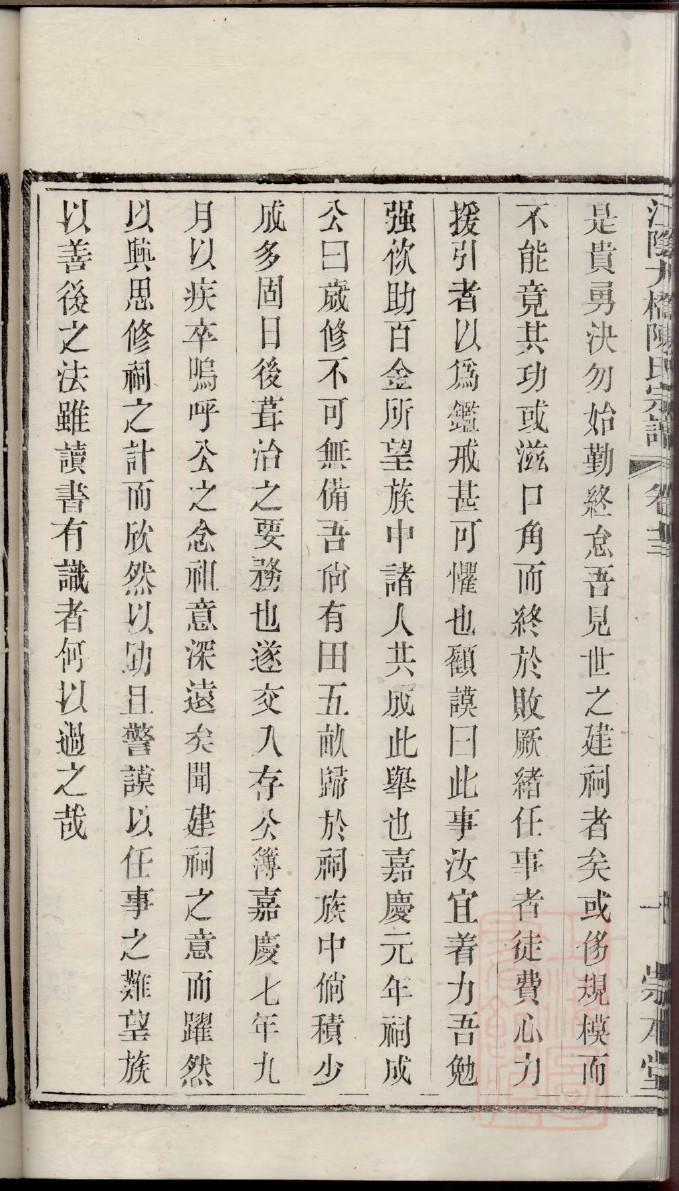 江陰九橋陳氏宗譜 卷十三 崇本堂
是貴勇決勿始勤終怠吾見世之建祠者矣或侈規模而
不能竟其功或滋口角而終於敗厥緒任事者徒費心力
援引者以爲鑑戒甚可懼也顧謨曰此事汝宜着力吾勉
强佽助百金所望族中諸人共成此舉也嘉慶元年祠成
公曰歲修不可無備吾尙有田五畝歸於祠族中倘積少
成多固日後葺治之要務也遂交入存公簿嘉慶七年九
月以疾卒嗚呼公之念祖意深遠矣聞建祠之意而躍然
以興思修祠之計而欣然以助且警謨以任事之難望族
以善後之法雖讀書有識者何以過之哉